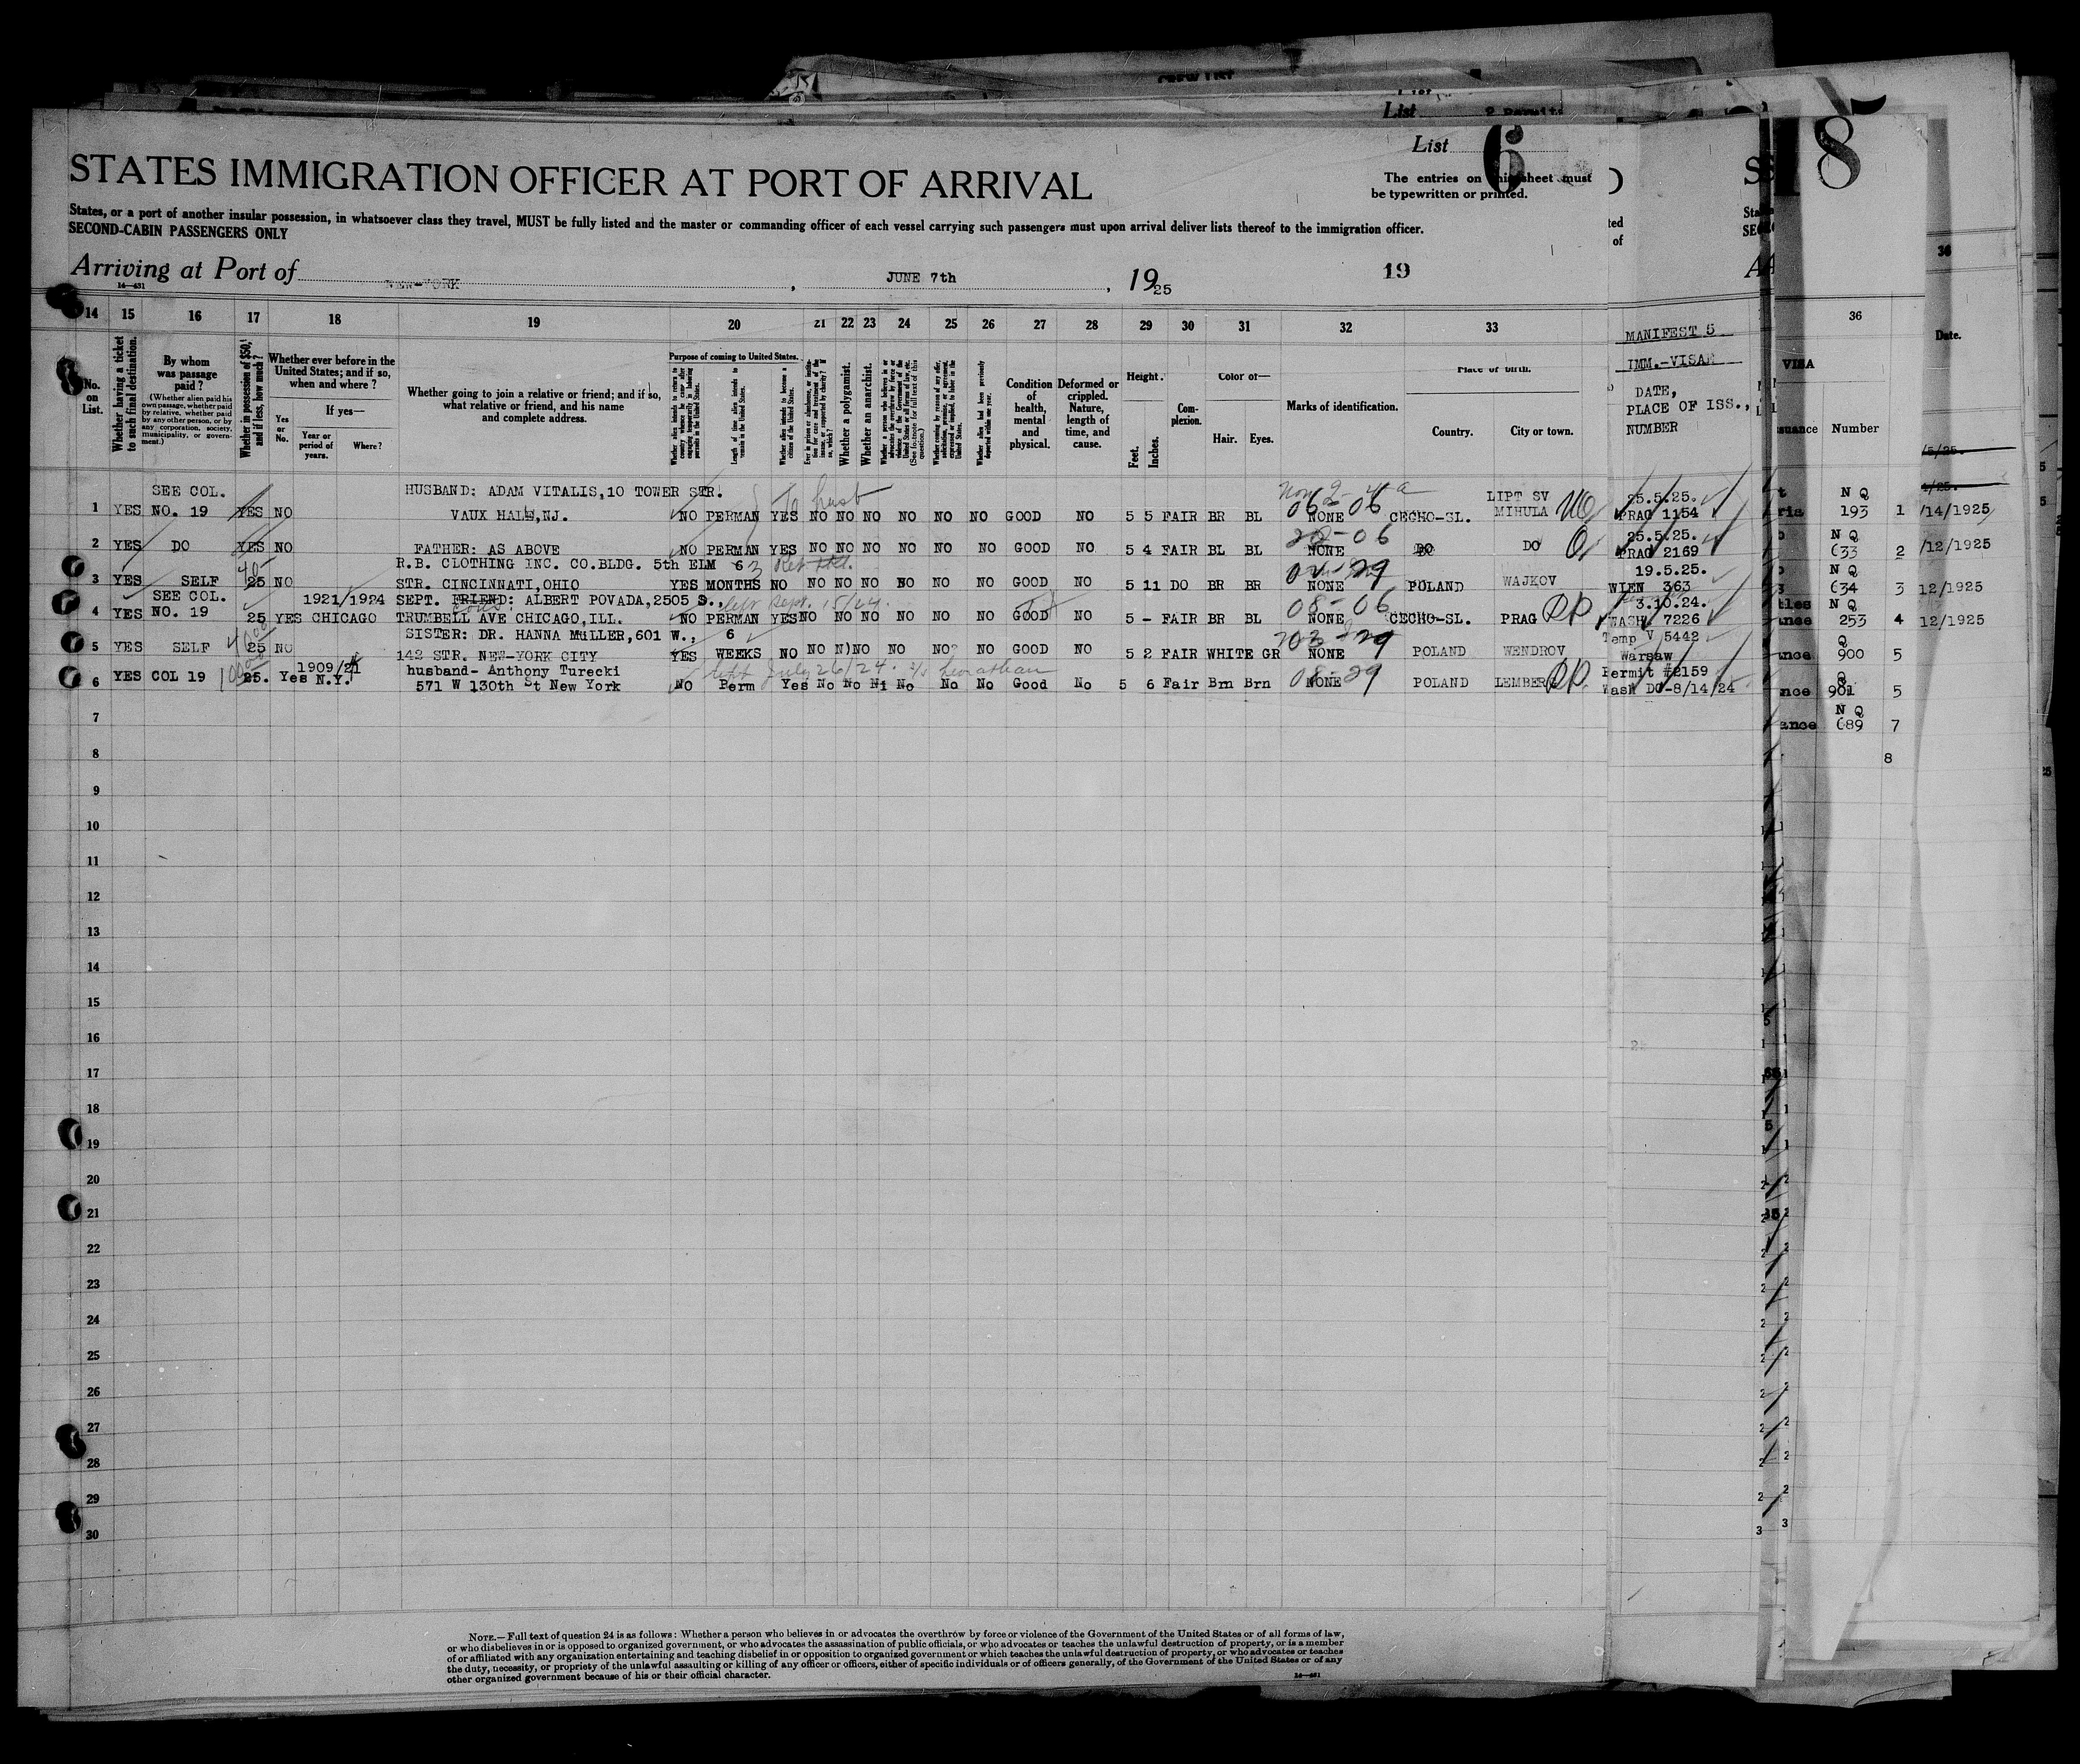 CREW LIST
List 2 Permits
List 6
STATES IMMIGRATION OFFICER AT PORT OF ARRIVAL
The entries on this sheet must
be typewritten or printed.
States, or a port of another insular possession, in whatsoever class they travel, MUST be fully listed and the master or commanding officer of each vessel carrying such passengers must upon arrival deliver lists thereof to the immigration officer.
SECOND-CABIN PASSENGERS ONLY
Arriving at Port of NEW-YORK, JUNE 7th, 1925 19
14 15 16 17 18 19 20 21 22 23 24 25 26 27 28 29 30 31 32 33
No. on List.
Whether having a ticket to such final destination.
By whom was passage paid?
(Whether alien paid his own passage, whether paid by relative, whether paid by any other person, or by any corporation, society, municipality, or government.)
Whether in possession of $50, and if less, how much?
Whether ever before in the United States; and if so, when and where?
Yes or No.
If yes—
Year or period of years.
Where?
Whether going to join a relative or friend; and if so, what relative or friend, and his name and complete address.
Purpose of coming to United States.
Length of time alien intends to remain in the United States.
Whether alien intends to become a citizen of the United States.
Whether a polygamist.
Whether an anarchist.
Condition of health, mental and physical.
Deformed or crippled. Nature, length of time, and cause.
Height.
Feet. Inches.
Complexion.
Color of—
Hair. Eyes.
Marks of identification.
Place of birth.
Country. City or town.
MANIFEST 5
IMM.-VISAE
DATE,
PLACE OF ISS.,
NUMBER
SEE COL. HUSBAND: ADAM VITALIS,10 TOWER STR. To husb LIPT SV 25.5.25.
1 YES NO. 19 YES NO VAUX HALL,NJ. NO PERMAN YES NO NO NO NO NO NO GOOD NO 5 5 FAIR BR BL 06-06 NONE CECHO-SL. MIHULA PRAG 1154
25.5.25.
2 YES DO YES NO FATHER: AS ABOVE NO PERMAN YES NO NO NO NO NO NO GOOD NO 5 4 FAIR BL BL NONE DO DO PRAG 2169
40- R.B. CLOTHING INC. CO.BLDG. 5th ELM 6 19.5.25.
3 YES SELF 25 NO STR. CINCINNATI,OHIO YES MONTHS NO NO NO NO NO NO NO GOOD NO 5 11 DO BR BR NONE POLAND WAJKOV WIEN 363
SEE COL. 1921/1924 SEPT. FRIEND: ALBERT POVADA,2505 S., left Sept. 15/24. 08-06 3.10.24.
4 YES NO. 19 25 YES CHICAGO TRUMBELL AVE CHICAGO,ILL. NO PERMAN YES NO NO NO NO NO NO GOOD NO 5 - FAIR BR BL NONE CECHO-SL. PRAG WASH 7226
SISTER: DR. HANNA MüLLER,601 W., 6 Temp V 5442
5 YES SELF 25 NO 142 STR. NEW-YORK CITY YES WEEKS NO NO N) NO NO NO NO GOOD NO 5 2 FAIR WHITE GR NONE POLAND WENDROV Warsaw
1909/21 husband- Anthony Turecki left July 26/24. s/s Leviathan 08-29 Permit #2159
6 YES COL 19 25. Yes N.Y. 571 W 130th St New York NO Perm Yes No No No No No Good No 5 6 Fair Brn Brn NONE POLAND LEMBERG Wash DC-8/14/24
7
8
9
10
11
12
13
14
15
16
17
18
19
20
21
22
23
24
25
26
27
28
29
30
18
36
VISA
Number
Date.
N Q
193 1 /14/1925
N Q
633 2 /12/1925
N Q
634 3 12/1925
N Q
253 4 12/1925
Q
900 5
Q
901 5
N Q
689 7
8
NOTE.—Full text of question 24 is as follows: Whether a person who believes in or advocates the overthrow by force or violence of the Government of the United States or of all forms of law,
or who disbelieves in or is opposed to organized government, or who advocates the assassination of public officials, or who advocates or teaches the unlawful destruction of property, or is a member
of or affiliated with any organization entertaining and teaching disbelief in or opposition to organized government or which teaches the unlawful destruction of property, or who advocates or teaches
the duty, necessity, or propriety of the unlawful assaulting or killing of any officer or officers, either of specific individuals or of officers generally, of the Government of the United States or of any
other organized government because of his or their official character.